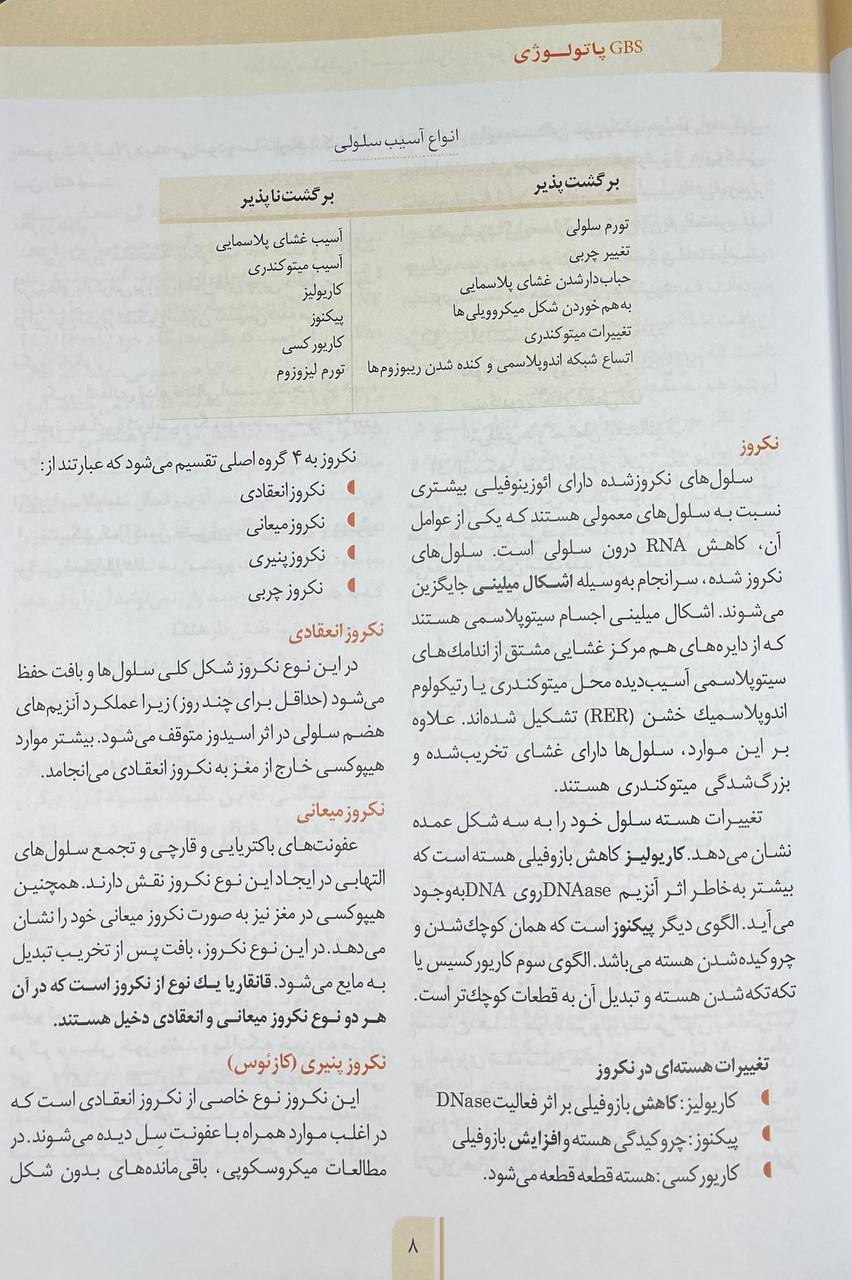 GBS پاتولـوژی
انواع آسیب سلولی
برگشت‌پذیر
تورم سلولی
تغییر چربی
حباب‌دارشدن غشای پلاسمایی
به‌هم‌خوردن شکل میکروویلی‌ها
تغییرات میتوکندری
اتساع شبکه اندوپلاسمی و کنده شدن ریبوزوم‌ها
برگشت‌ناپذیر
آسیب غشای پلاسمایی
آسیب میتوکندری
کاریولیز
پیکنوز
کاریورکسی
تورم لیزوزوم
نکروز
سلول‌های نکروزشده دارای ائوزینوفیلی بیشتری
نسبت به سلول‌های معمولی هستند که یکی از عوامل
آن، کاهش RNA درون سلولی است. سلول‌های
نکروز شده، سرانجام به‌وسیله اشکال میلینی جایگزین
می‌شوند. اشکال میلینی اجسام سیتوپلاسمی هستند
که از دایره‌های هم مرکز غشایی مشتق از اندامك‌های
سیتوپلاسمی آسیب‌دیده محل میتوکندری یا رتیکولوم
اندوپلاسمیك خشن (RER) تشکیل شده‌اند. علاوه
بر این موارد، سلول‌ها دارای غشای تخریب‌شده و
بزرگ‌شدگی میتوکندری هستند.
تغییرات هسته سلول خود را به سه شکل عمده
نشان می‌دهد. کاریولیز کاهش بازوفیلی هسته است که
بیشتر به‌خاطر اثر آنزیم DNAase روی DNA به‌وجود
می‌آید. الگوی دیگر پیکنوز است که همان کوچك‌شدن و
چروکیده‌شدن هسته می‌باشد. الگوی سوم کاریورکسیس یا
تکه‌تکه‌شدن هسته و تبدیل آن به قطعات کوچك‌تر است.
تغییرات هسته‌ای در نکروز
کاریولیز: کاهش بازوفیلی بر اثر فعالیت DNase
پیکنوز: چروکیدگی هسته و افزایش بازوفیلی
کاریورکسی: هسته قطعه قطعه می‌شود.
نکروز به ۴ گروه اصلی تقسیم می‌شود که عبارتند از:
نکروز انعقادی
نکروز میعانی
نکروز پنیری
نکروز چربی
نکروز انعقادی
در این نوع نکروز شکل کلی سلول‌ها و بافت حفظ
می‌شود (حداقل برای چند روز) زیرا عملکرد آنزیم‌های
هضم سلولی در اثر اسیدوز متوقف می‌شود. بیشتر موارد
هیپوکسی خارج از مغز به نکروز انعقادی می‌انجامد.
نکروز میعانی
عفونت‌های باکتریایی و قارچی و تجمع سلول‌های
التهابی در ایجاد این نوع نکروز نقش دارند. همچنین
هیپوکسی در مغز نیز به صورت نکروز میعانی خود را نشان
می‌دهد. در این نوع نکروز، بافت پس از تخریب تبدیل
به مایع می‌شود. قانقاریا یك نوع از نکروز است که در آن
هر دو نوع نکروز میعانی و انعقادی دخیل هستند.
نکروز پنیری (کازئوس)
این نکروز نوع خاصی از نکروز انعقادی است که
در اغلب موارد همراه با عفونت سِل دیده می‌شوند. در
مطالعات میکروسکوپی، باقی‌مانده‌های بدون شکل
۸